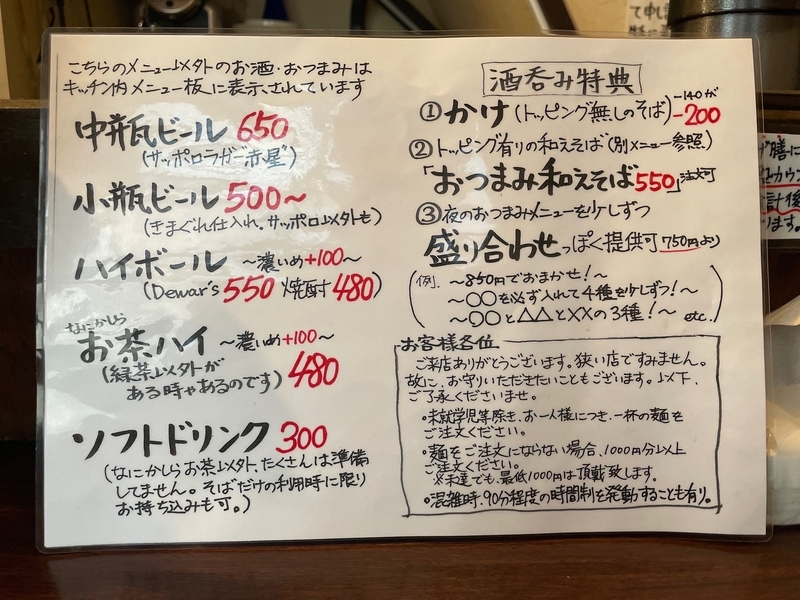 こちらのメニュー以外のお酒・おつまみは
キッチン内メニュー板に表示されています
中瓶ビール 650
(サッポロラガー"赤星")
小瓶ビール 500〜
(きまぐれ仕入れ。サッポロ以外も)
ハイボール 〜濃いめ+100〜
(Dewar's 550 焼酎 480)
なにかしら
お茶ハイ 〜濃いめ+100〜
(緑茶以外が
ある時ゃあるのです) 480
ソフトドリンク 300
(なにかしらお茶以外、たくさんは準備
してません。そばだけの利用時に限り
お持ち込みも可。)
酒呑み特典
①かけ(トッピング無しのそば) -140が -200
②トッピング有りの和えそば(別メニュー参照)
「おつまみ和えそば550」注文可
③夜のおつまみメニューを少しずつ
盛り合わせっぽく提供可 750円より
(例. 〜850円でおまかせ!〜
〜○○を必ず入れて4種を少しずつ!〜
〜○○と△△と××の3種!〜 etc.)
お客様各位
ご来店ありがとうございます。狭い店ですみません。
故に、お守りいただきたいこともございます。以下、
ご了承くださいませ。
・未就学児等除き、お一人様につき、一杯の麺を
ご注文ください。
・麺をご注文にならない場合、1000円分以上
ご注文ください。
※未達でも、最低1000円は頂戴致します。
・混雑時、90分程度の時間制を発動することも有り。